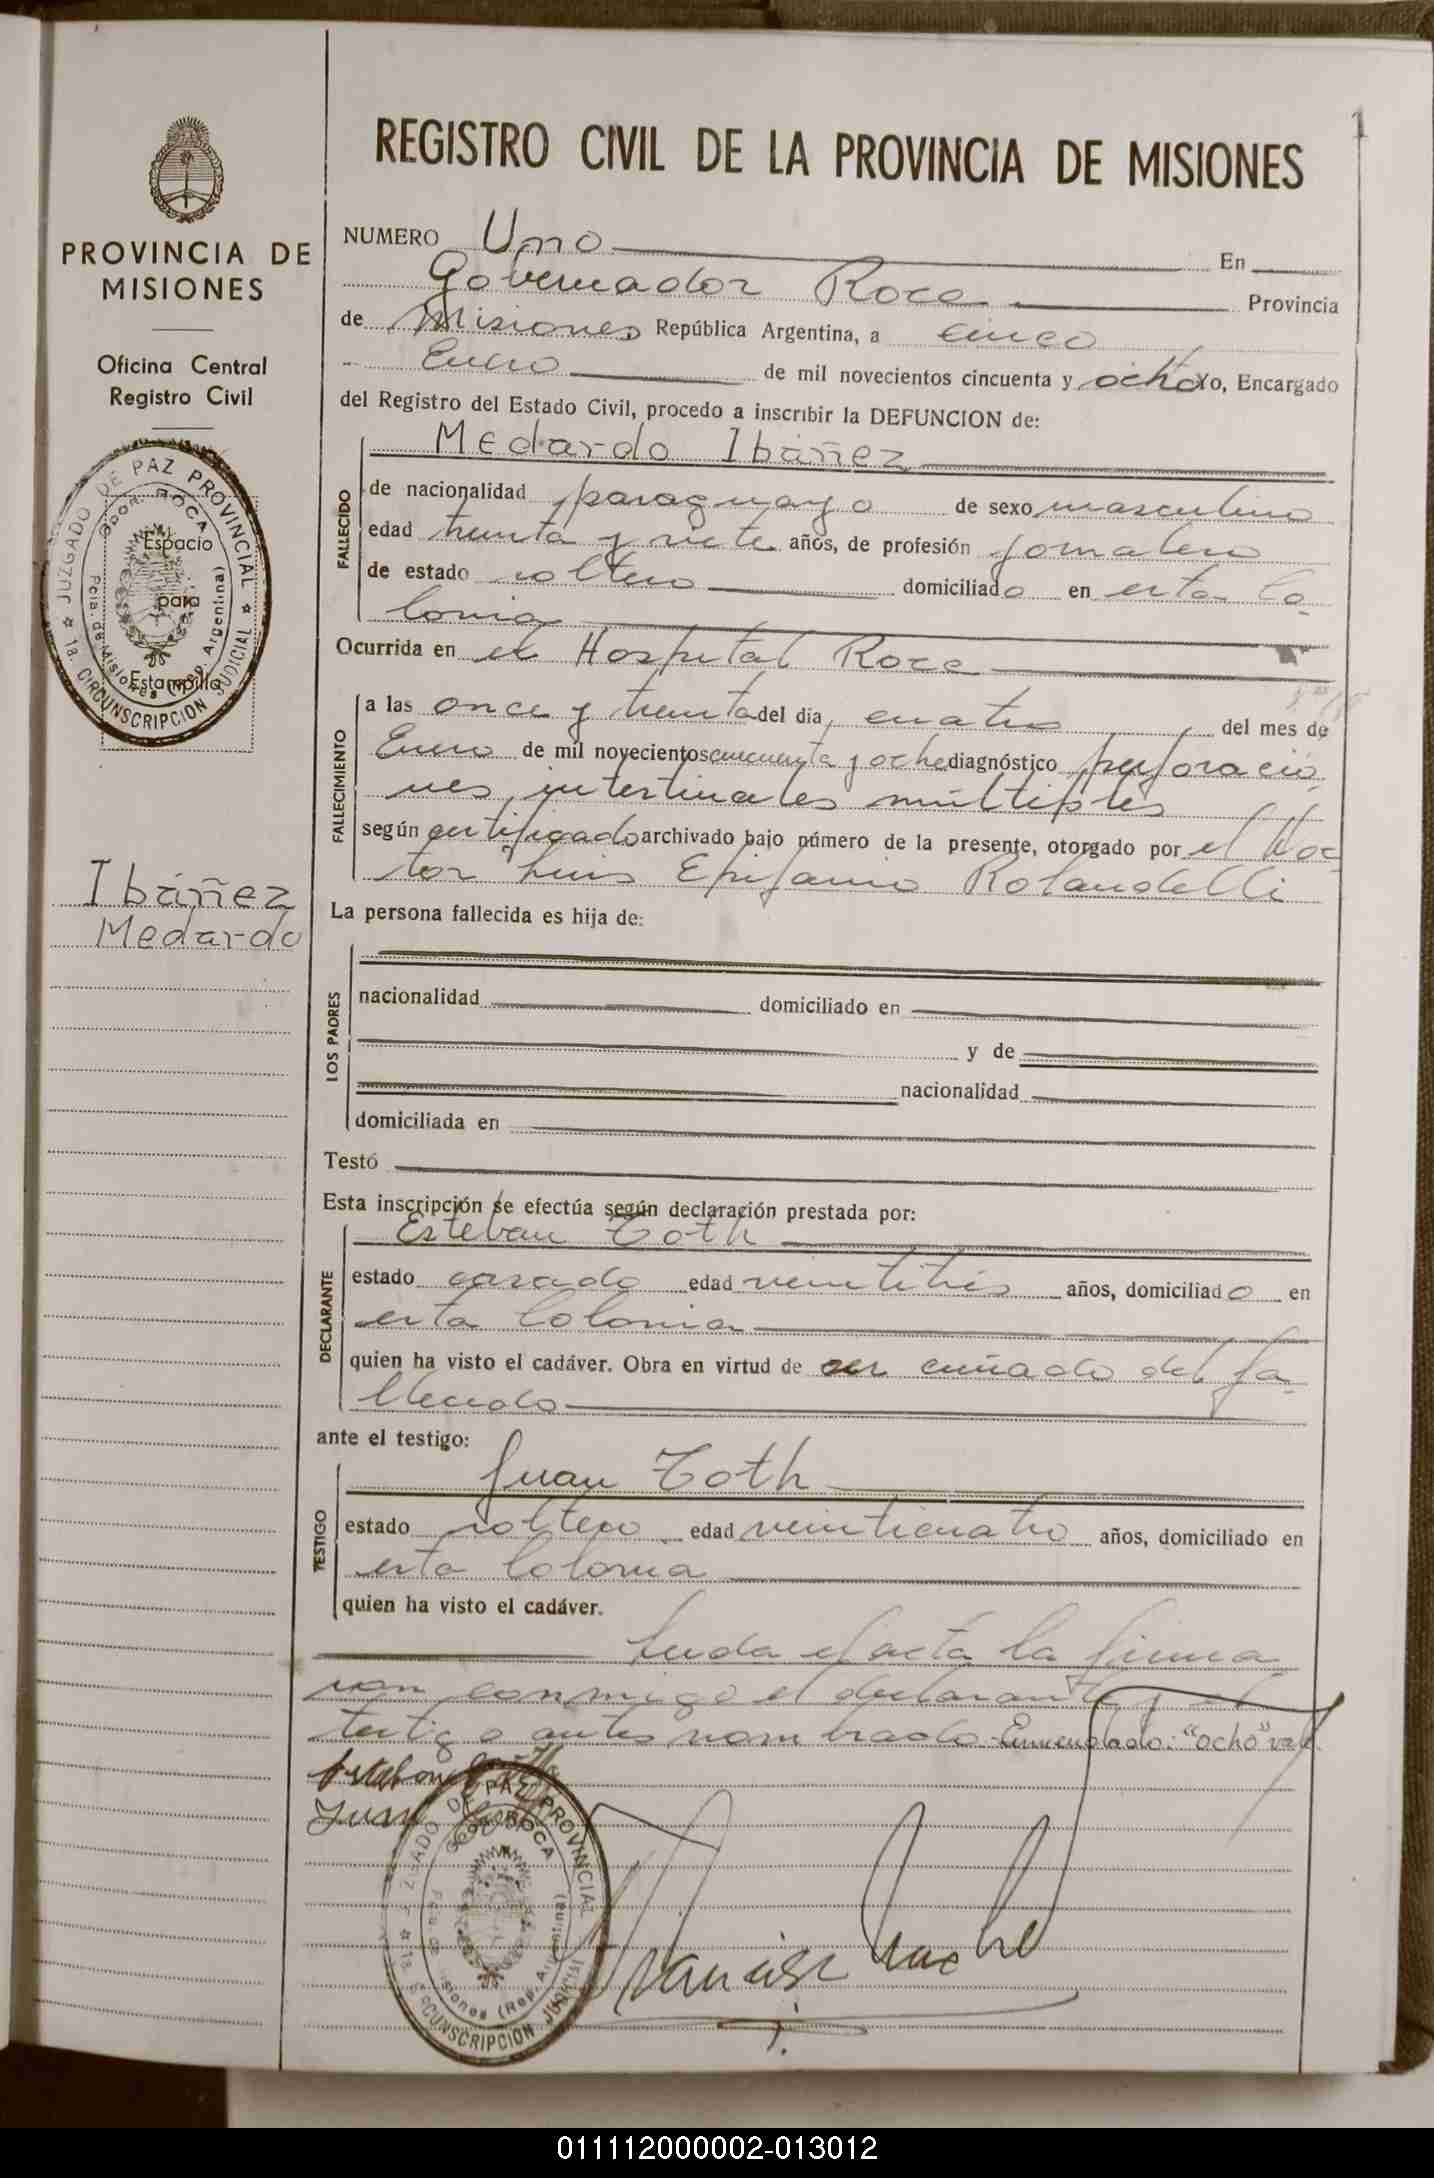 1
REGISTRO CIVIL DE LA PROVINCIA DE MISIONES
PROVINCIA DE
MISIONES
Oficina Central
Registro Civil
JUZGADO DE PAZ PROVINCIAL
GDOR. ROCA
Pcia. de Misiones (Rep. Argentina)
1a. CIRCUNSCRIPCION JUDICIAL
Espacio
para
Estampilla
Ibáñez
Medardo
NUMERO Uno En
Gobernador Roca Provincia
de Misiones República Argentina, a cinco
Enero de mil novecientos cincuenta y ocho Yo, Encargado
del Registro del Estado Civil, procedo a inscribir la DEFUNCION de:
Medardo Ibáñez
FALLECIDO
de nacionalidad paraguayo de sexo masculino
edad treinta y siete años, de profesión jornalero
de estado soltero domiciliado en esta Co-
lonia
Ocurrida en el Hospital Roca
FALLECIMIENTO
a las once y treinta del dia, cuatro del mes de
Enero de mil novecientos cincuenta y ocho diagnóstico perforacio-
nes intestinales múltiples
según certificado archivado bajo número de la presente, otorgado por el Doc-
tor Luis Epifanio Rolandelli
La persona fallecida es hija de:
LOS PADRES
nacionalidad domiciliado en
y de
nacionalidad
domiciliada en
Testó
Esta inscripción se efectúa según declaración prestada por:
Esteban Toth
DECLARANTE
estado casado edad veintitrés años, domiciliado en
esta Colonia
quien ha visto el cadáver. Obra en virtud de ser cuñado del fa-
llecido
ante el testigo:
Juan Toth
TESTIGO
estado soltero edad veinticuatro años, domiciliado en
esta Colonia
quien ha visto el cadáver.
Leida el acta la firma
ron conmigo el declarante y el
testigo antes nombrado. Enmendado: "ocho" vale.
Esteban Toth
Juan Toth
JUZGADO DE PAZ PROVINCIAL
GDOR. ROCA
Pcia. de Misiones (Rep. Argentina)
1a. CIRCUNSCRIPCION JUDICIAL
011112000002-013012